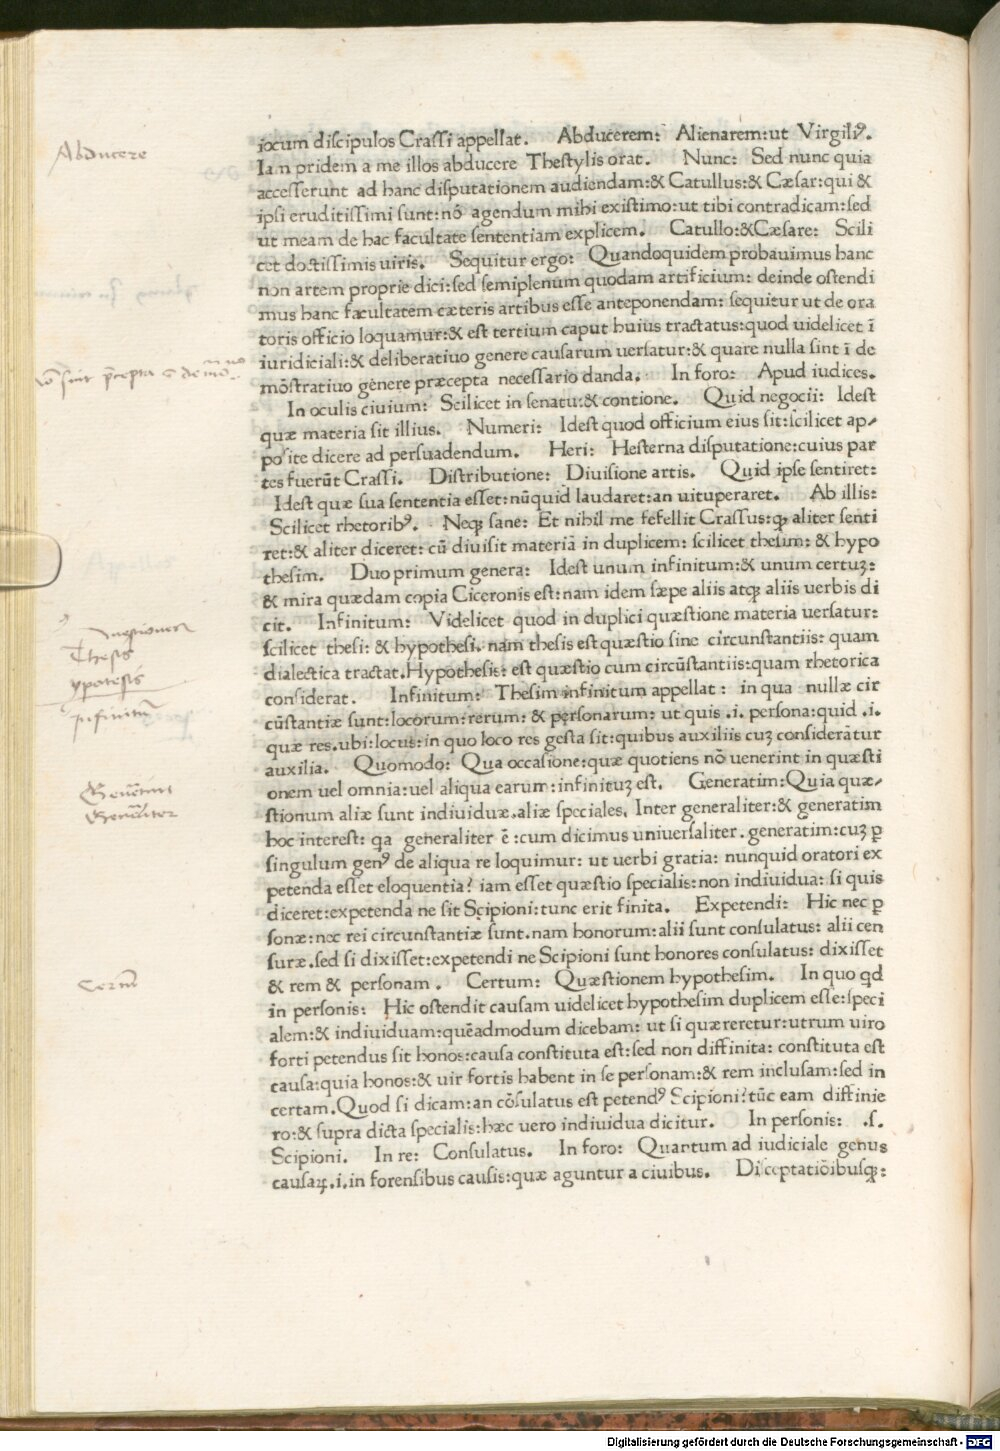 iocum discipulos Crassi appellat. Abducerem: Alienarem:ut Virgiliꝰ.
Abducere
Iam pridem a me illos abducere Thestylis orat. Nunc: Sed nunc quia
accesserunt ad hanc disputationem audiendam:& Catullus:& Cæsar:qui &
ipsi eruditissimi sunt:nō agendum mihi existimo:ut tibi contradicam:sed
ut meam de hac facultate sententiam explicem. Catullo:&Cæsare: Scili
cet doctissimis uiris. Sequitur ergo: Quandoquidem probauimus hanc
non artem proprie dici:sed semiplenum quodam artificium: deinde ostendi
mus hanc facultatem cæteris artibus esse anteponendam: sequitur ut de ora
toris officio loquamur:& est tertium caput huius tractatus:quod uidelicet ī
iuridiciali:& deliberatiuo genere causarum uersatur:& quare nulla sint ī de
mōstratiuo genere præcepta necessario danda. In foro: Apud iudices.
In oculis ciuium: Scilicet in senatu:& contione. Quid negocii: Idest
quæ materia sit illius. Numeri: Idest quod officium eius sit:scilicet ap-
posite dicere ad persuadendum. Heri: Hesterna disputatione:cuius par
tes fuerūt Crassi. Distributione: Diuisione artis. Quid ipse sentiret:
Idest quæ sua sententia esset:nūquid laudaret:an uituperaret. Ab illis:
Scilicet rhetoribꝰ. Neqꝫ sane: Et nihil me fefellit Crassus:qꝫ aliter senti
ret:& aliter diceret: cū diuisit materiā in duplicem: scilicet thesim: & hypo
thesim. Duo primum genera: Idest unum infinitum:& unum certuꝫ:
& mira quædam copia Ciceronis est:nam idem sæpe aliis atqꝫ aliis uerbis di
cit. Infinitum: Videlicet quod in duplici quæstione materia uersatur:
scilicet thesi: & hypothesi. nam thesis est quæstio sine circunstantiis: quam
Thesis
dialectica tractat.Hypothesis: est quæstio cum circūstantiis:quam rhetorica
ypotesis
considerat. Infinitum: Thesim infinitum appellat: in qua nullæ cir
infinitum
cūstantiæ sunt:locorum:rerum: & personarum: ut quis .i. persona:quid .i.
quæ res.ubi:locus:in quo loco res gesta sit:quibus auxiliis cuꝫ considerātur
auxilia. Quomodo: Qua occasione:quæ quotiens nō uenerint in quæsti
onem uel omnia:uel aliqua earum:infinituꝫ est. Generatim:Quia quæ-
stionum aliæ sunt indiuiduæ.aliæ speciales. Inter generaliter:& generatim
hoc interest: qa generaliter ē:cum dicimus uniuersaliter.generatim:cuꝫ ꝑ
singulum genꝰ de aliqua re loquimur: ut uerbi gratia: nunquid oratori ex
petenda esset eloquentia? iam esset quæstio specialis:non indiuidua: si quis
diceret:expetenda ne sit Scipioni:tunc erit finita. Expetendi: Hic nec ꝑ
sonæ:nec rei circunstantiæ sunt.nam honorum:alii sunt consulatus: alii cen
suræ.sed si dixisset:expetendi ne Scipioni sunt honores consulatus: dixisset
& rem & personam. Certum: Quæstionem hypothesim. In quo qd
in personis: Hic ostendit causam uidelicet hypothesim duplicem esse:speci
alem:& indiuiduam:quēadmodum dicebam: ut si quæreretur:utrum uiro
forti petendus sit honos:causa constituta est:sed non diffinita: constituta est
causa:quia honos:& uir fortis habent in se personam:& rem inclusam:sed in
certam.Quod si dicam:an cōsulatus est petendꝰ Scipioni?tūc eam diffinie
ro:& supra dicta specialis:hæc uero indiuidua dicitur. In personis: .s.
Scipioni. In re: Consulatus. In foro: Quantum ad iudiciale genus
causaꝝ.i.in forensibus causis:quæ aguntur a ciuibus. Disceptatiōibusqꝫ:
Digitalisierung gefördert durch die Deutsche Forschungsgemeinschaft - DFG